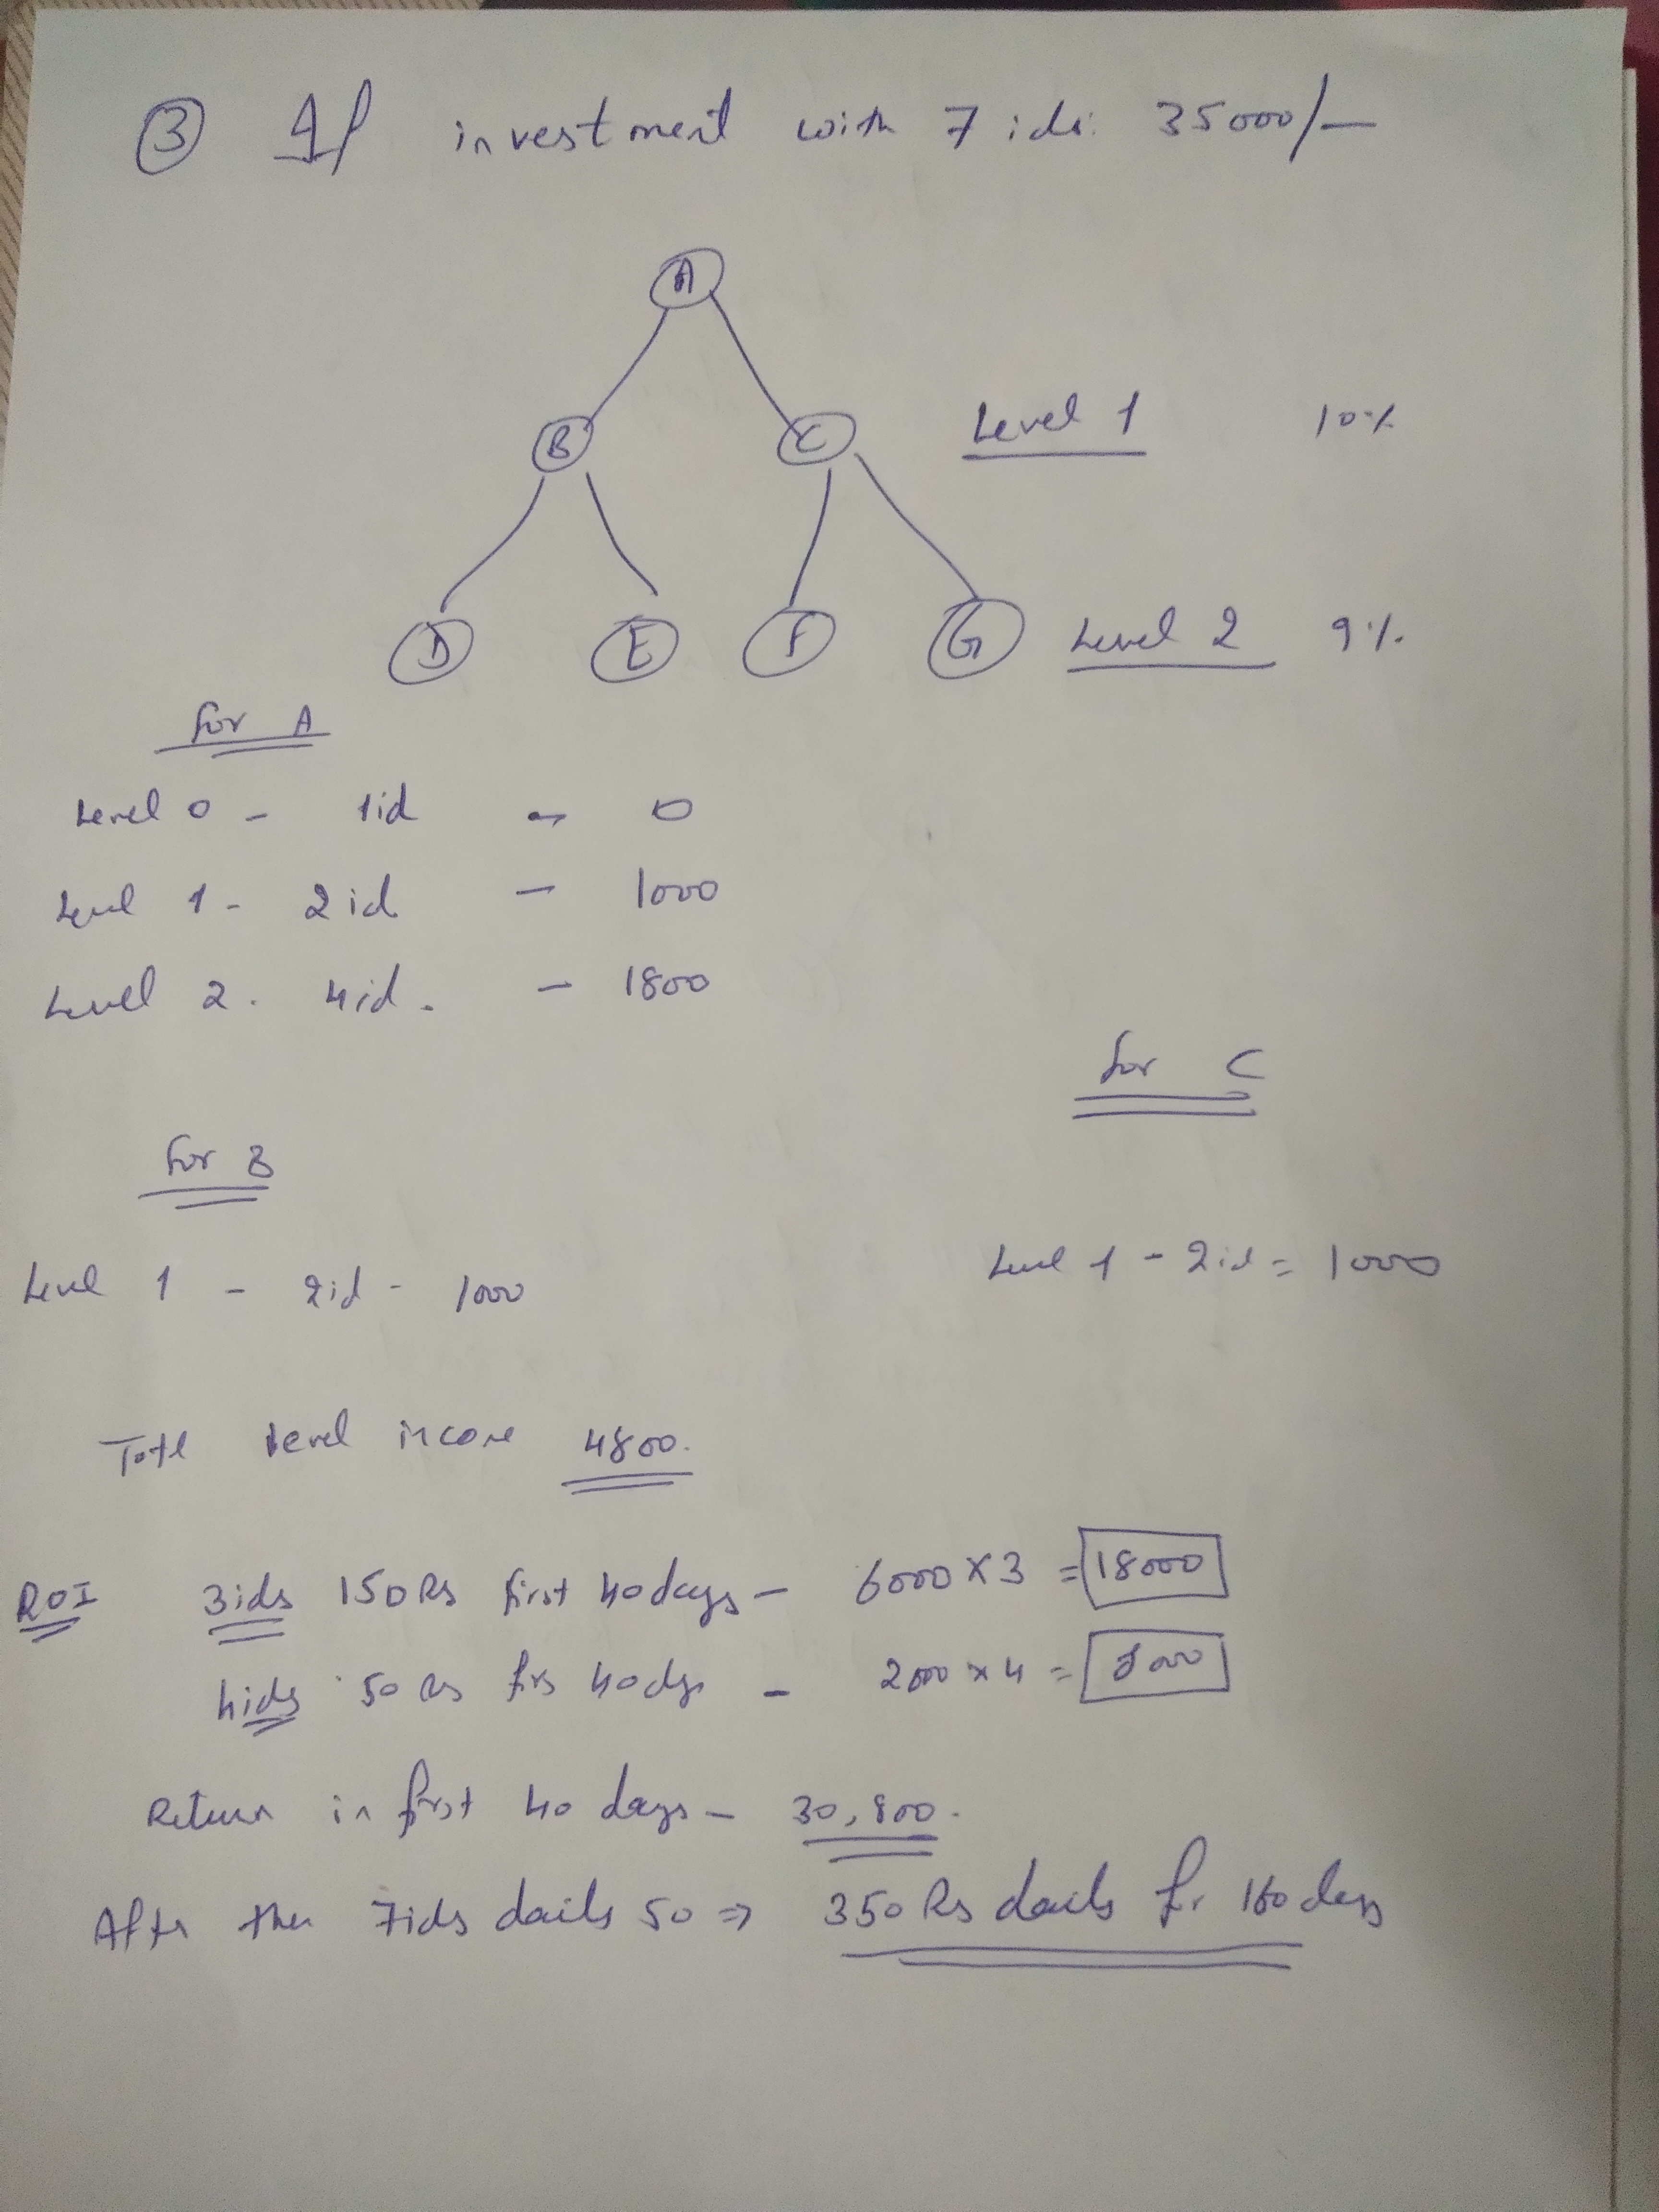 3 If investment with 7 ids 35000/-
A
B C Level 1 10%
D E F G Level 2 9%
for A
Level 0 - 1id - 0
Level 1 - 2id - 1000
Level 2. 4id. - 1800
for C
for B
Level 1 - 2id = 1000
Level 1 - 2id - 1000
Totl level incone 4800.
ROI 3ids 150Rs first 40days - 6000 x 3 = 18000
4ids 50Rs firs 40dys - 2000 x 4 = 8000
Return in first 40 days - 30,800.
After then 7ids daily 50 => 350Rs daily for 160 days